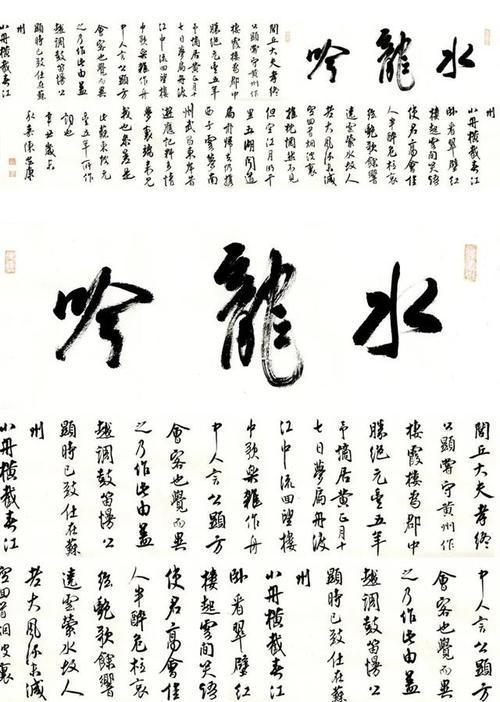 水龍吟
閭丘大夫孝終
公顯嘗守黃州作
棲霞樓為郡中
勝絕元豐五年
予謫居黃正月十
七日夢扁舟渡
江中流回望樓
中歌樂雜作舟
中人言公顯方
會客也覺而異
之乃作此曲蓋
越調鼓笛慢公
顯時已致仕在蘇
州
小舟橫截春江
州
小舟橫截春江
臥看翠壁紅
樓起雲間笑語
使君高會佳
人半醉危柱哀
絃艷歌餘響
遶雲縈水故人
老大風流未減
空回首煙波裏
推枕惘然不見
但空江月明千
里五湖聞道
扁舟歸去仍攜
西子雲夢南
州武昌東岸昔
遊應記料多情
夢裏端來見
我也參差是
此蘇東坡元
豐五年所作
詞也
辛丑歲
水龍吟
閭丘大夫孝終
公顯嘗守黃州作
棲霞樓為郡中
勝絕元豐五年
予謫居黃正月十
七日夢扁舟渡
江中流回望樓
中歌樂雜作舟
中人言公顯方
會客也覺而異
之乃作此曲蓋
越調鼓笛慢公
顯時已致仕在蘇
州
小舟橫截春江
中人言公顯方
會客也覺而異
之乃作此曲蓋
越調鼓笛慢公
顯時已致仕在蘇
州
小舟橫截春江
臥看翠壁紅
樓起雲間笑語
使君高會佳
人半醉危柱哀
絃艷歌餘響
遶雲縈水故人
老大風流未減
空回首煙波裏